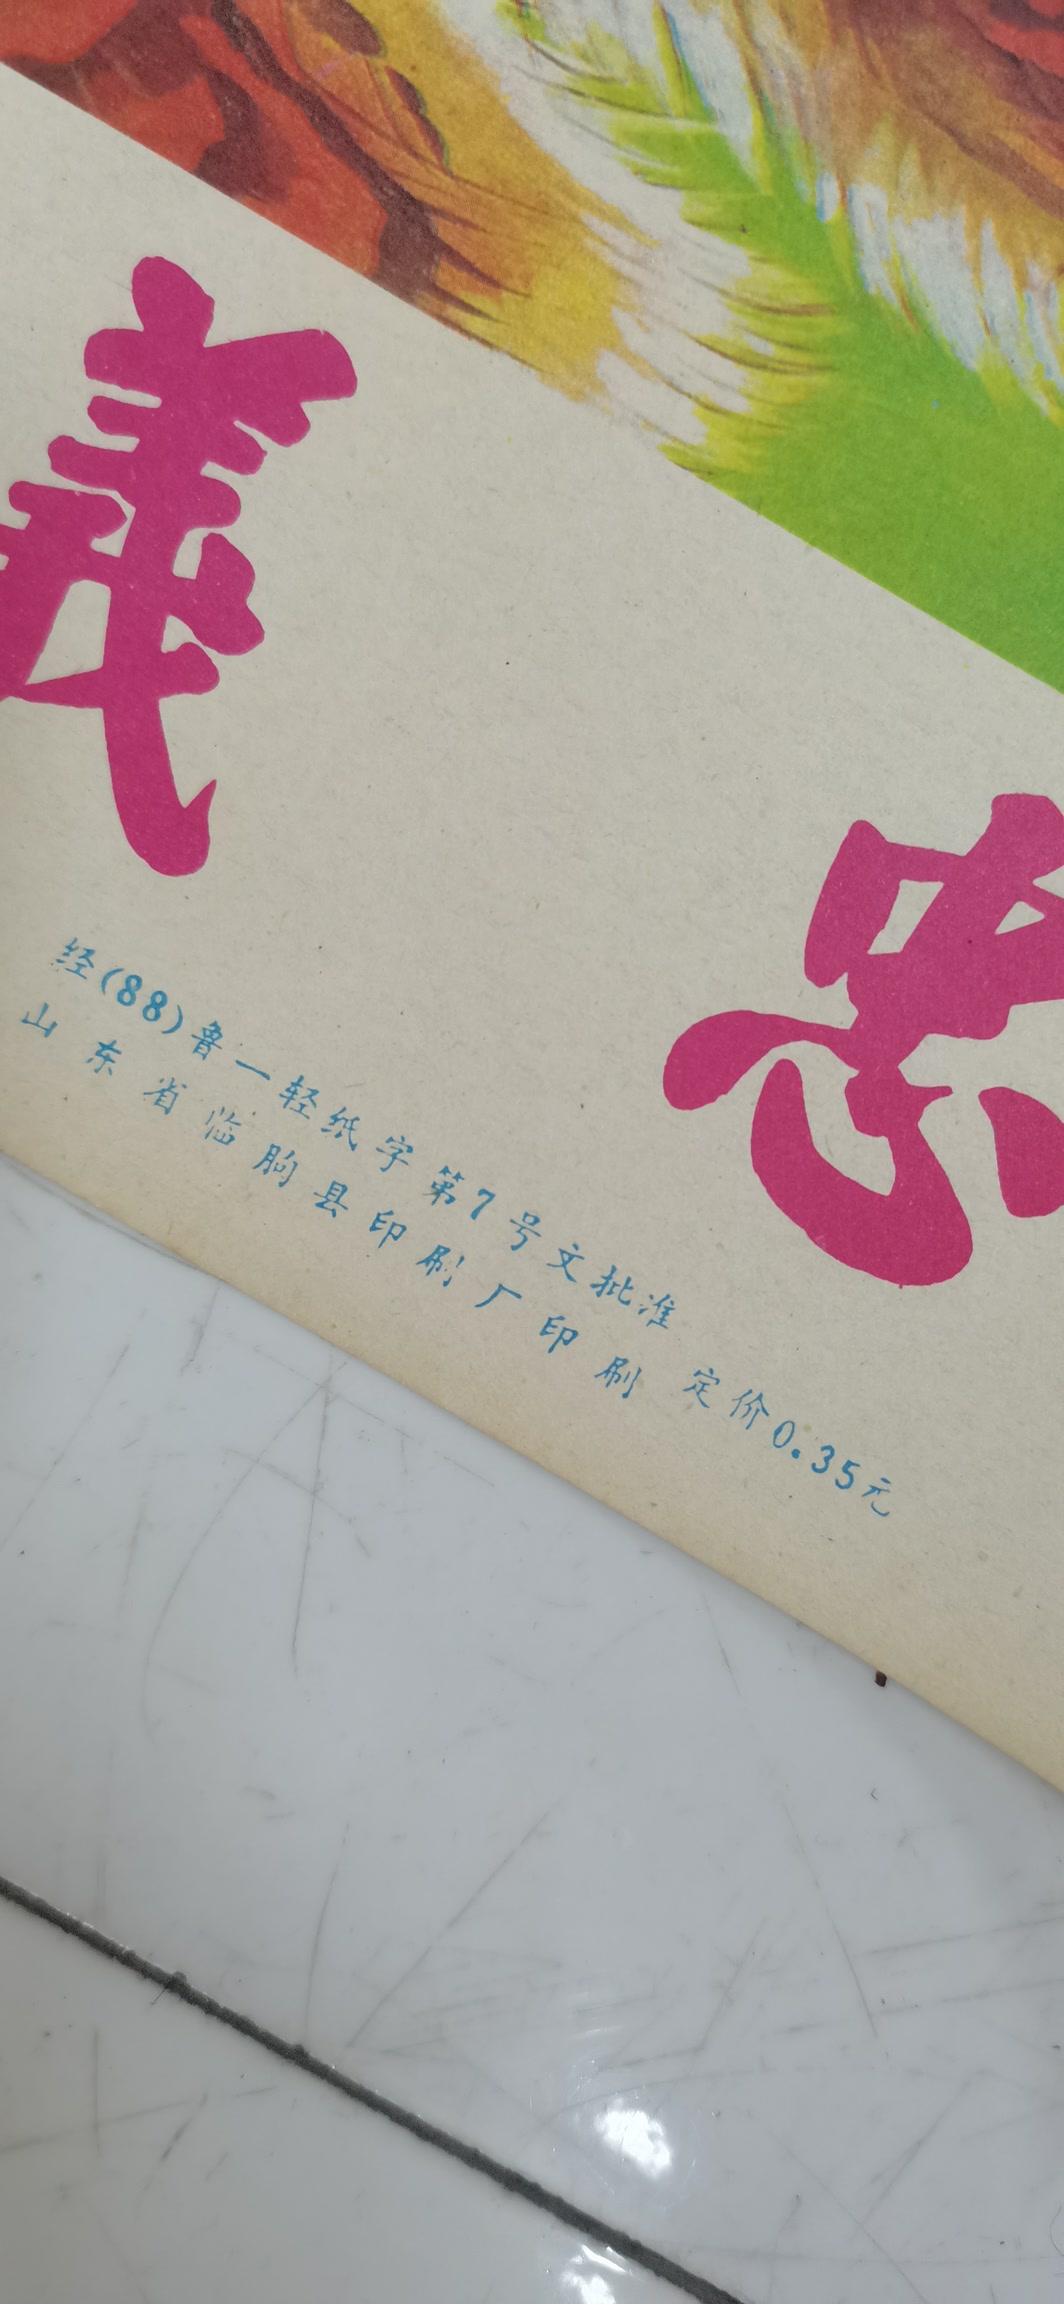 義 忠
经(88)鲁一轻纸字第7号文批准
山东省临朐县印刷厂印刷 定价0.35元